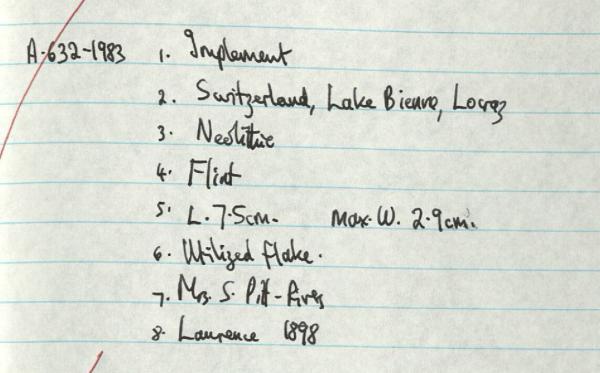 A.632-1983 1. Implement
2. Switzerland, Lake Bienne, Locraz
3. Neolithic
4. Flint
5. L. 7.5cm. Max. W. 2.9cm.
6. Utilized flake.
7. Mrs. S. Pitt-Rivers
8. Laurence 1898